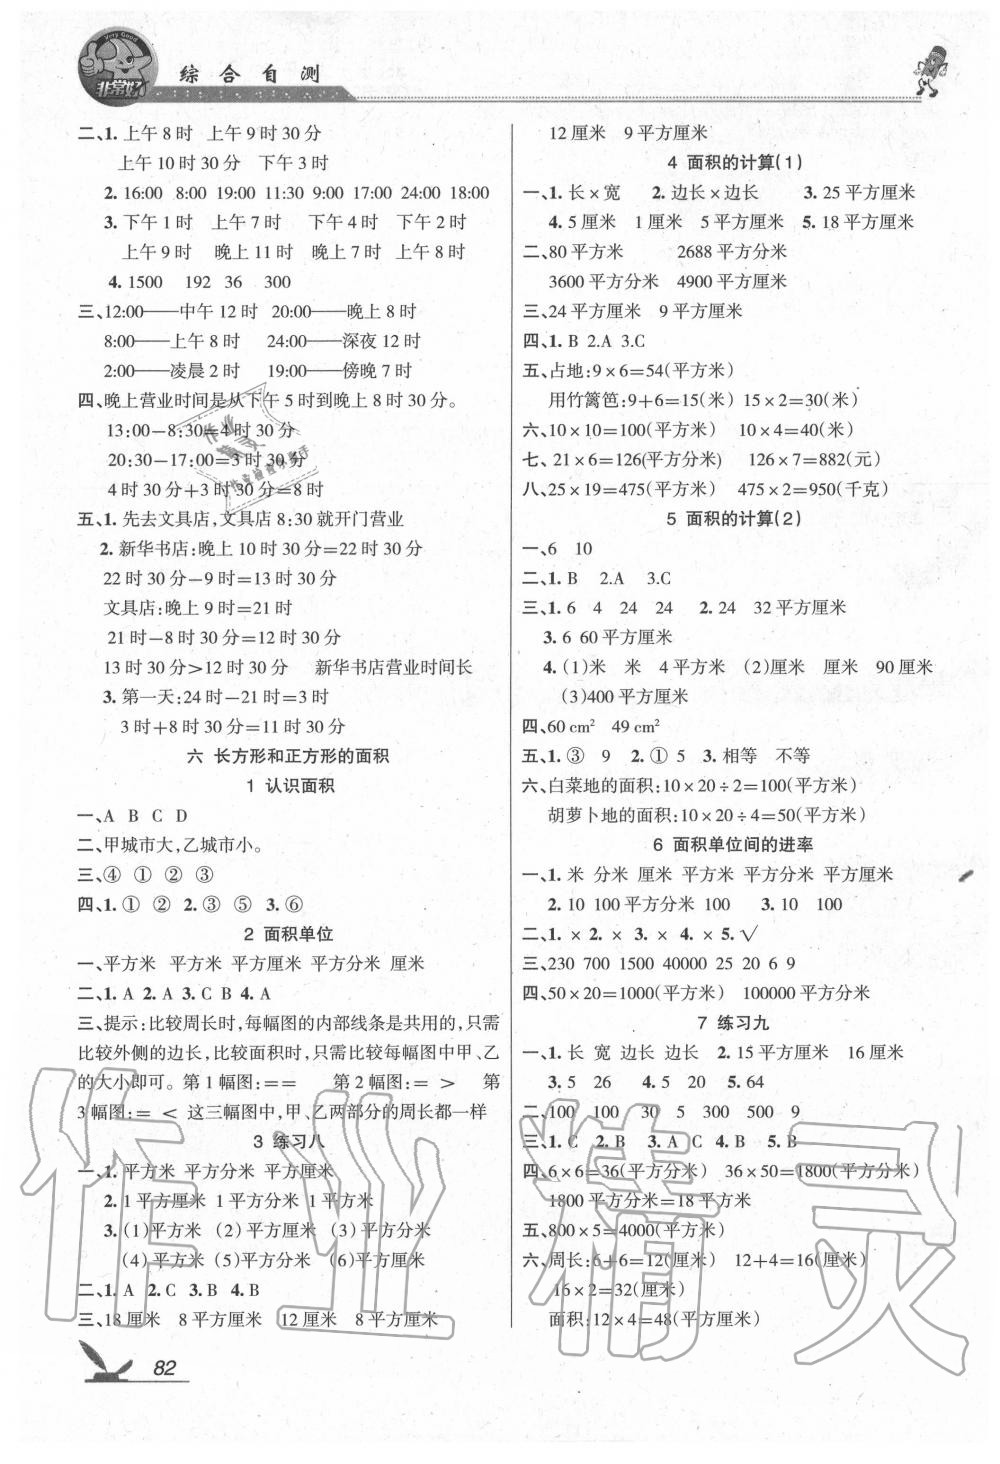 Very Good
非常好
综合自测
二、1. 上午 8 时 上午 9 时 30 分
上午 10 时 30 分 下午 3 时
2. 16:00 8:00 19:00 11:30 9:00 17:00 24:00 18:00
3. 下午 1 时 上午 7 时 下午 4 时 下午 2 时
上午 9 时 晚上 11 时 晚上 7 时 上午 6 时
4. 1500 192 36 300
三、12:00——中午 12 时 20:00——晚上 8 时
8:00——上午 8 时 24:00——深夜 12 时
2:00——凌晨 2 时 19:00——傍晚 7 时
四、晚上营业时间是从下午 5 时到晚上 8 时 30 分。
13:00-8:30=4 时 30 分
20:30-17:00=3 时 30 分
4 时 30 分+3 时 30 分=8 时
五、1. 先去文具店,文具店 8:30 就开门营业
2. 新华书店:晚上 10 时 30 分=22 时 30 分
22 时 30 分-9 时=13 时 30 分
文具店:晚上 9 时=21 时
21 时-8 时 30 分=12 时 30 分
13 时 30 分>12 时 30 分 新华书店营业时间长
3. 第一天:24 时-21 时=3 时
3 时+8 时 30 分=11 时 30 分
六 长方形和正方形的面积
1 认识面积
一、A B C D
二、甲城市大,乙城市小。
三、④ ① ② ③
四、1. ① ② 2. ③ ⑤ 3. ⑥
2 面积单位
一、平方米 平方米 平方厘米 平方分米 厘米
二、1. A 2. A 3. C B 4. A
三、提示:比较周长时,每幅图的内部线条是共用的,只需
比较外侧的边长,比较面积时,只需比较每幅图中甲、乙
的大小即可。第 1 幅图:= = 第 2 幅图:= > 第
3 幅图:= < 这三幅图中,甲、乙两部分的周长都一样
3 练习八
一、1. 平方米 平方分米 平方厘米
2. 1 平方厘米 1 平方分米 1 平方米
3. (1)平方米 (2)平方厘米 (3)平方分米
(4)平方米 (5)平方分米 (6)平方厘米
二、1. A 2. C 3. B 4. B
三、18 厘米 8 平方厘米 12 厘米 8 平方厘米
82
12 厘米 9 平方厘米
4 面积的计算(1)
一、1. 长×宽 2. 边长×边长 3. 25 平方厘米
4. 5 厘米 1 厘米 5 平方厘米 5. 18 平方厘米
二、80 平方米 2688 平方分米
3600 平方分米 4900 平方厘米
三、24 平方厘米 9 平方厘米
四、1. B 2. A 3. C
五、占地:9×6=54(平方米)
用竹篱笆:9+6=15(米) 15×2=30(米)
六、10×10=100(平方米) 10×4=40(米)
七、21×6=126(平方米) 126×7=882(元)
八、25×19=475(平方米) 475×2=950(千克)
5 面积的计算(2)
一、6 10
二、1. B 2. A 3. C
三、1. 6 4 24 24 2. 24 32 平方厘米
3. 6 60 平方厘米
4. (1)米 米 4 平方米 (2)厘米 厘米 90 厘米
(3)400 平方厘米
四、60 cm² 49 cm²
五、1. ③ 9 2. ① 5 3. 相等 不等
六、白菜地的面积:10×20÷2=100(平方米)
胡萝卜地的面积:10×20÷4=50(平方米)
6 面积单位间的进率
一、1. 米 分米 厘米 平方米 平方分米 平方厘米
2. 10 100 平方分米 100 3. 10 100
二、1. × 2. × 3. × 4. × 5. √
三、230 700 1500 40000 25 20 6 9
四、50×20=1000(平方米) 100000 平方分米
7 练习九
一、1. 长 宽 边长 边长 2. 15 平方厘米 16 厘米
3. 5 26 4. 5 20 5. 64
二、100 100 30 5 300 500 9
三、1. C 2. B 3. A C 4. B 5. B
四、6×6=36(平方分米) 36×50=1800(平方分米)
1800 平方分米=18 平方米
五、800×5=4000(平方米)
六、周长:6+6=12(厘米) 12+4=16(厘米)
16×2=32(厘米)
面积:12×4=48(平方厘米)
作业精灵